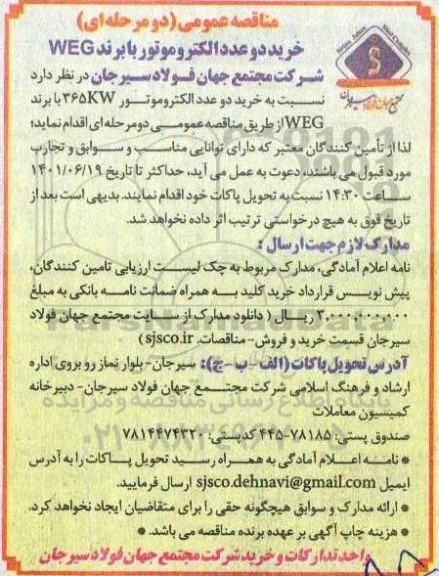 مناقصه عمومی (دو مرحله ای)
خرید دو عدد الکتروموتور با برند WEG
شرکت مجتمع جهان فولاد سیرجان در نظر دارد
نسبت به خرید دو عدد الکتروموتور ۳۶۵KW با برند
WEG از طریق مناقصه عمومی دومرحله‌ای اقدام نماید؛
لذا از تأمین کنندگان معتبر که دارای توانایی مناسب و سوابق و تجارب
مورد قبول می باشند، دعوت به عمل می آید، حداکثر تا تاریخ ۱۴۰۱/۰۶/۱۹
ساعت ۱۴:۳۰ نسبت به تحویل پاکات خود اقدام نمایند. بدیهی است بعد از
تاریخ فوق به هیچ درخواستی ترتیب اثر داده نخواهد شد.
مدارک لازم جهت ارسال :
نامه اعلام آمادگی، مدارک مربوط به چک لیست ارزیابی تامین کنندگان،
پیش نویس قرارداد خرید کلید به همراه ضمانت نامه بانکی به مبلغ
۳,۰۰۰,۰۰۰,۰۰۰ ریال ( دانلود مدارک از سایت مجتمع جهان فولاد
سیرجان قسمت خرید و فروش- مناقصات. sjsco.ir )
آدرس تحویل پاکات (الف - ب - ج): سیرجان- بلوار نماز رو بروی اداره
ارشاد و فرهنگ اسلامی شرکت مجتمع جهان فولاد سیرجان- دبیرخانه
کمیسیون معاملات
صندوق پستی: ۷۸۱۸۵-۴۴۵ کدپستی: ۷۸۱۴۴۷۴۳۲۰
* نامه اعلام آمادگی به همراه رسید تحویل پاکات را به آدرس
ایمیل sjsco.dehnavi@gmail.com ارسال فرمایید.
* ارائه مدارک و سوابق هیچگونه حقی را برای متقاضیان ایجاد نخواهد کرد.
* هزینه چاپ آگهی بر عهده برنده مناقصه می باشد. *
واحد تدارکات و خرید شرکت مجتمع جهان فولاد سیرجان